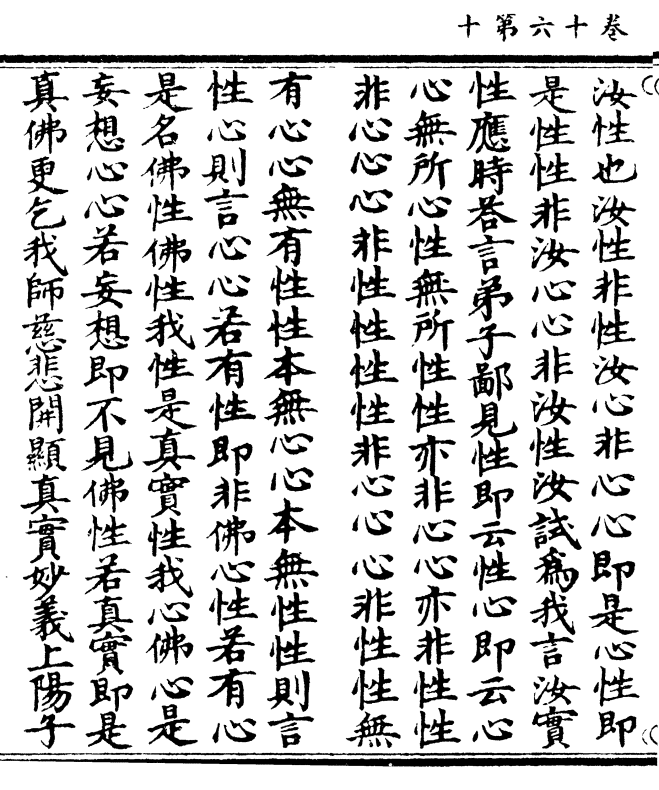 卷十六第十
汝性也汝性非性汝心非心心即是心性即
是性性非汝心心非汝性汝試爲我言汝實
性應時荅言弟子鄙見性即云性心即云心
心無所心性無所性性亦非心心亦非性性
非心心心非性性性性非心心心非性性無
有心心無有性性本無心心本無性性則言
性心則言心心若有性即非佛心性若有心
是名佛性佛性我性是真實性我心佛心是
妄想心心若妄想即不見佛性若真實即是
真佛更乞我師慈悲開顯真實妙義上陽子